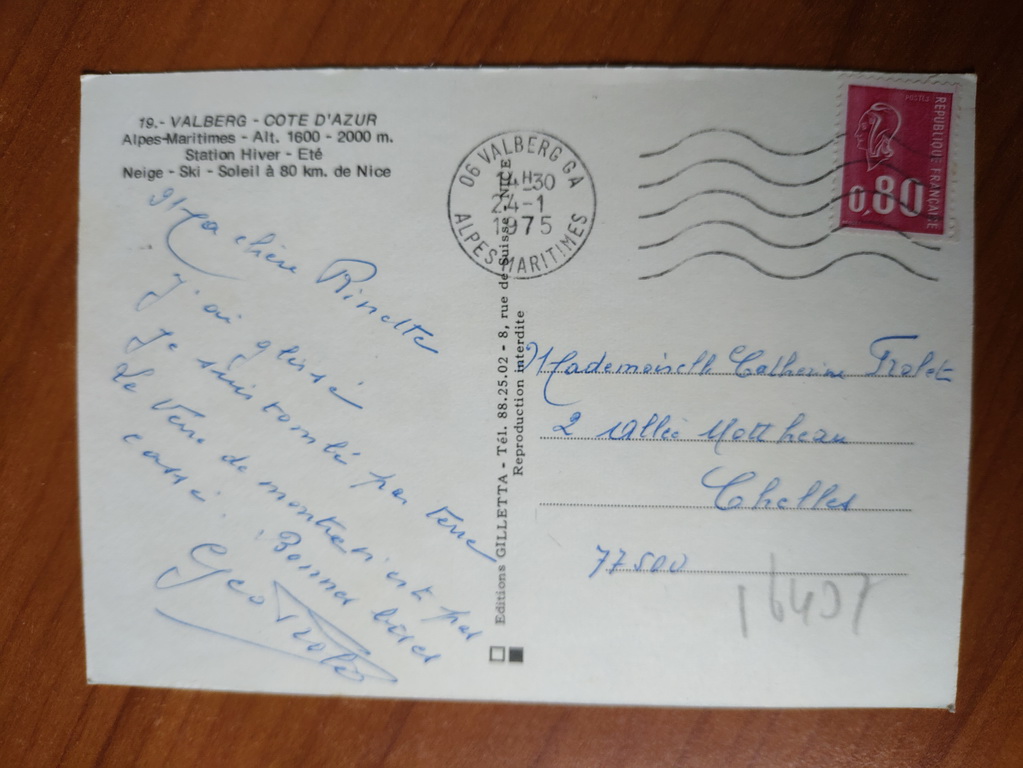 19.- VALBERG - COTE D'AZUR
Alpes-Maritimes - Alt. 1600 - 2000 m.
Station Hiver - Eté
Neige - Ski - Soleil à 80 km. de Nice
Ma chère Rinette
J'ai glissé
Je suis tombé par terre
Le verre de montre n'est pas
cassé. Bonnes bises
Geo
Editions GILLETTA - Tél. 88.25.02 - 8, rue de Suisse, NICE
Reproduction interdite
06 VALBERG GA
14H30
24-1
1975
ALPES MARITIMES
POSTES
REPUBLIQUE FRANÇAISE
0,80
Mademoiselle Catherine
2 allée
Chelles
77500